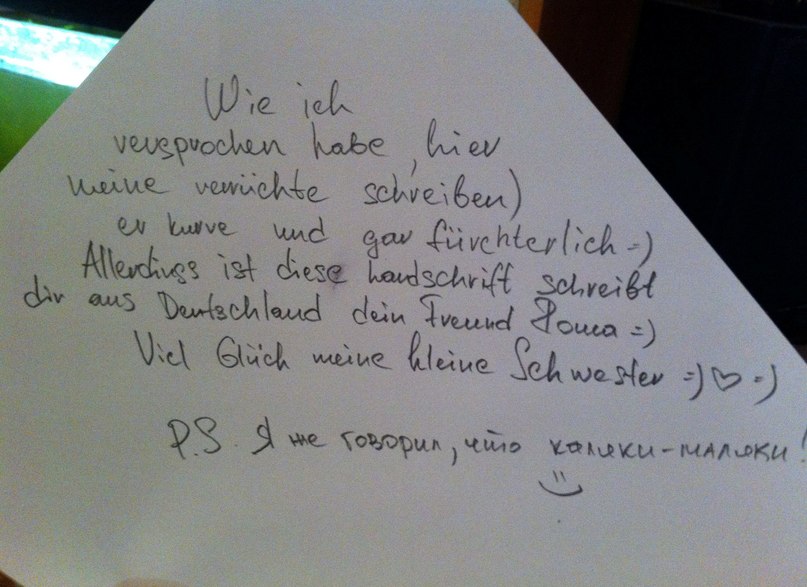 Wie ich
versprochen habe, hier
meine verrückte schreiben)
er kurve und gar fürchterlich =)
Allerdings ist diese handschrift schreibt
dir aus Deutschland dein Freund Рома =)
Viel Glück meine kleine Schwester =) ♡ =)
P.S. Я же говорил, что каляки-маляки!